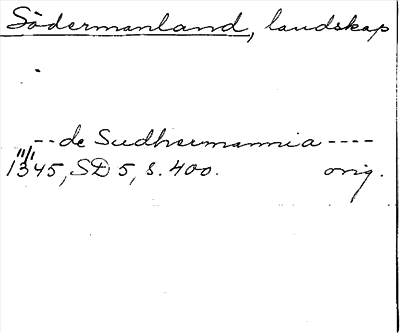 Södermanland, landskap
--de Sudhermannia----
11/1
1345, SD 5, s. 400. orig.